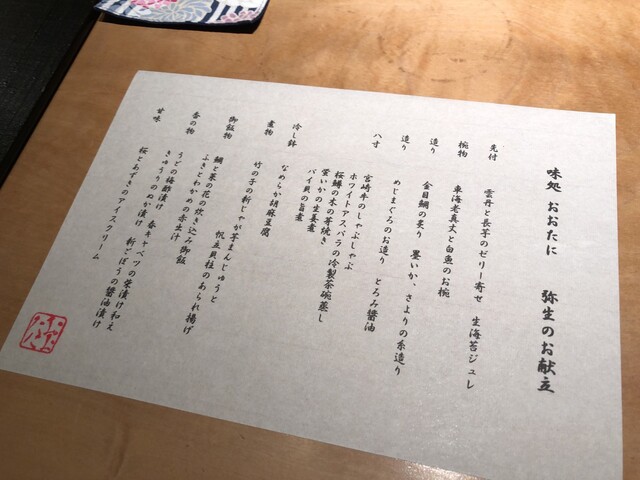 味処 おおたに 弥生のお献立
先付 雲丹と長芋のゼリー寄せ 生海苔ジュレ
椀物 車海老真丈と白魚のお椀
造り 金目鯛の炙り 墨いか、さよりの糸造り
造り めじまぐろのお造り とろみ醤油
八寸 宮崎牛のしゃぶしゃぶ
ホワイトアスパラの冷製茶碗蒸し
桜鱒の木の芽焼き
蛍いかの生姜煮
バイ貝の旨煮
冷し鉢 なめらか胡麻豆腐
煮物 竹の子の新じゃが芋まんじゅうと
帆立貝柱のあられ揚げ
御飯物 鯛と菜の花の炊き込み御飯
ふきとわかめの赤出汁
香の物 うどの梅酢漬け
きゅうりのぬか漬け 春キャベツの柴漬け和え
新ごぼうの醤油漬け
甘味 桜とあずきのアイスクリーム